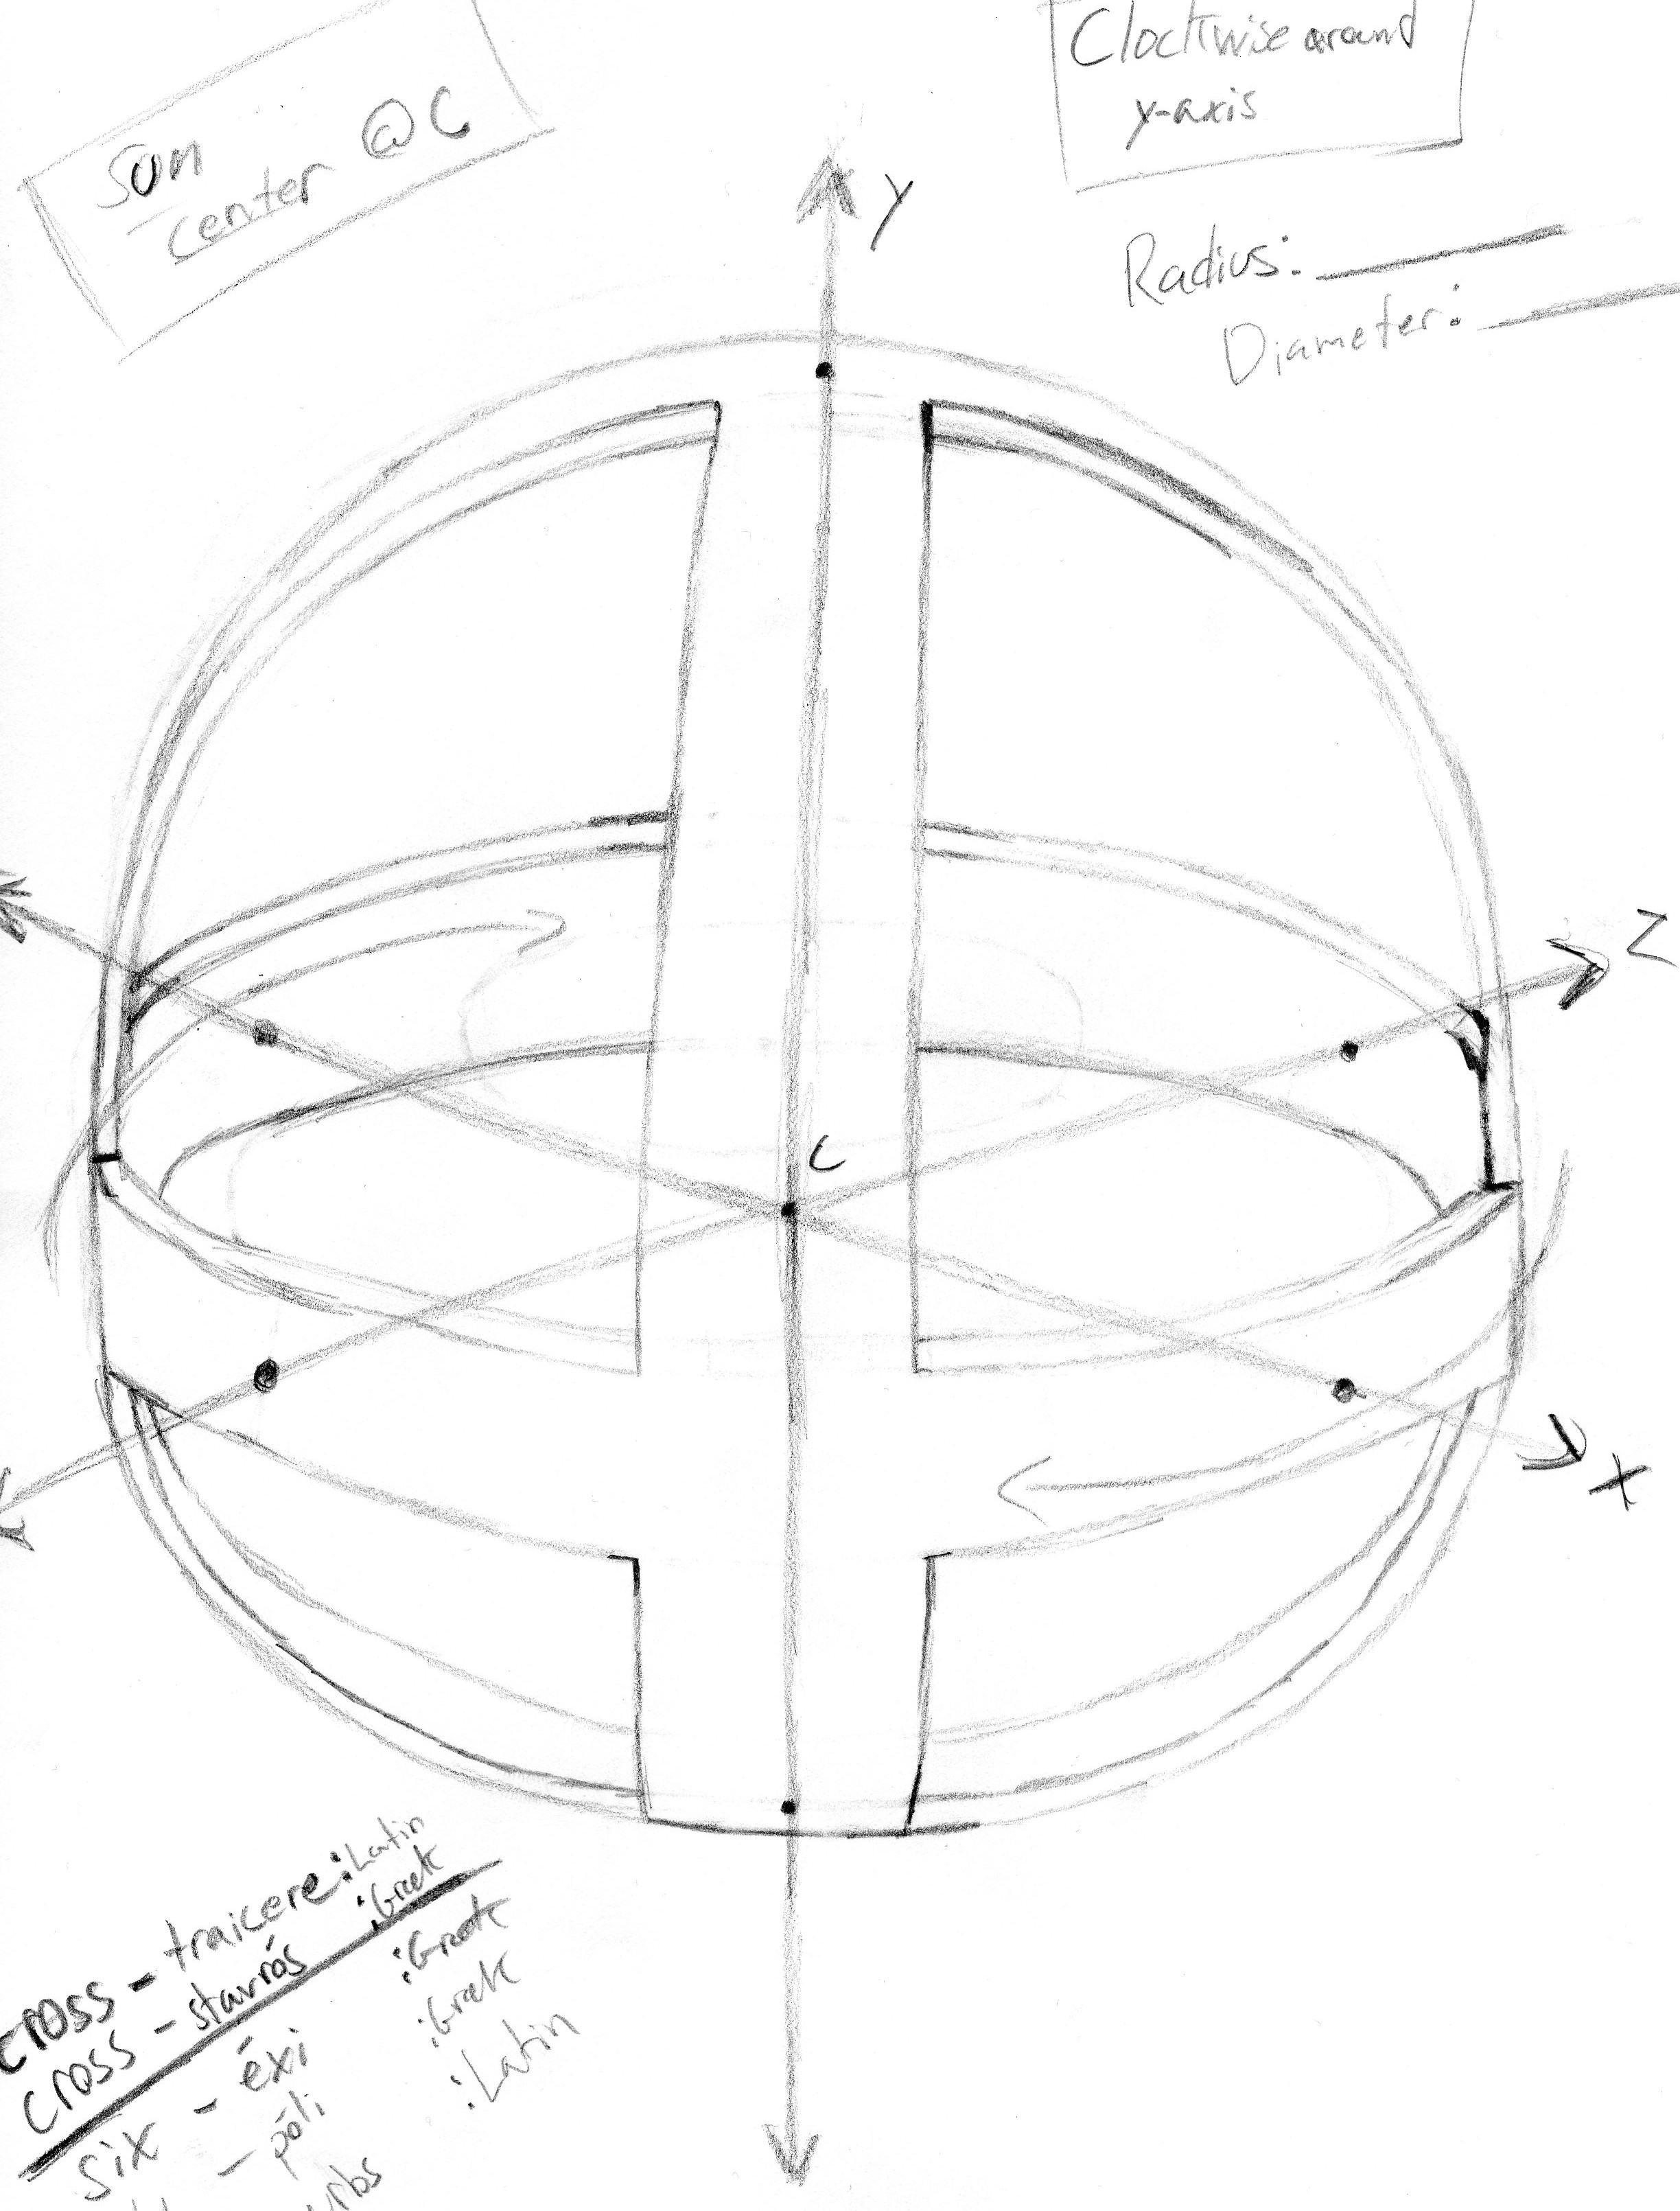 Sun
center @C
Clockwise around
y-axis
Radius:
Diameter:
y
Z
C
X
cross - traicere :Latin
cross - stavrós :Greek
six - éxi :Greek
- póli :Greek
:Latin